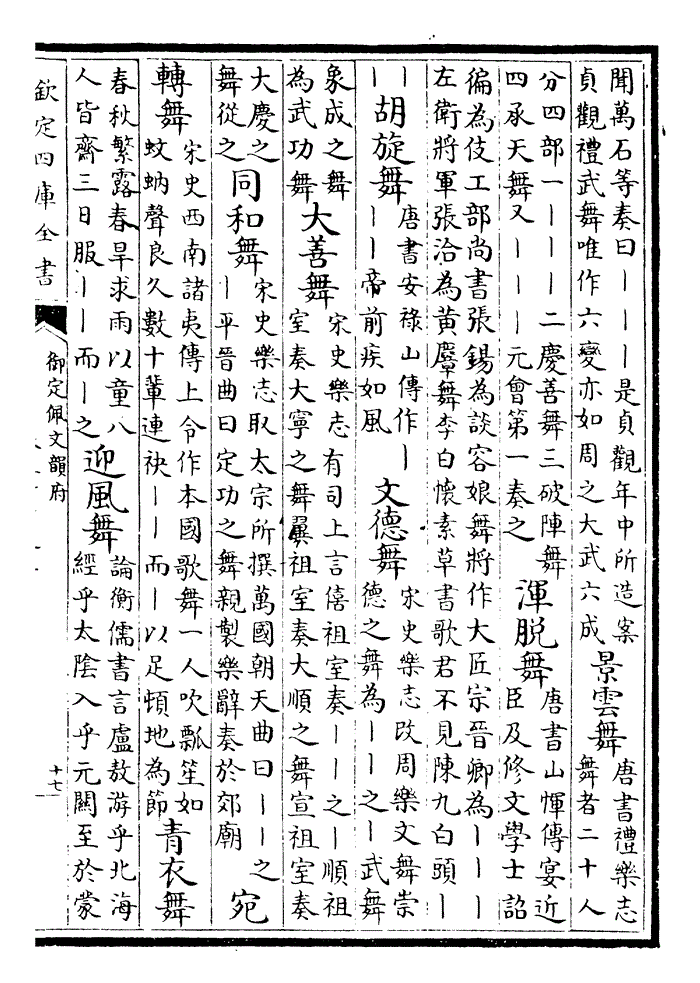 聞萬石等奏曰丨丨丨是貞觀年中所造案
貞觀禮武舞唯作六變亦如周之大武六成
景雲舞
唐書禮樂志
舞者二十人
分四部一丨丨丨二慶善舞三破陣舞
四承天舞又丨丨丨元會第一奏之
渾脫舞
唐書山惲傳宴近
臣及修文學士詔
徧為伎工部尚書張錫為談容娘舞將作大匠宗晉卿為丨丨丨
左衛將軍張洽為黃麞舞李白懷素草書歌君不見陳九白頭丨
丨
丨
胡旋舞
唐書安祿山傳作丨
丨丨帝前疾如風
文德舞
宋史樂志改周樂文舞崇
德之舞為丨丨之丨武舞
象成之舞
為武功舞
大善舞
宋史樂志有司上言僖祖室奏丨丨之丨順祖
室奏大寧之舞翼祖室奏大順之舞宣祖室奏
大慶之
舞從之
同和舞
宋史樂志取太宗所撰萬國朝天曲曰丨丨之
丨平晉曲曰定功之舞親製樂辭奏於郊廟
宛
轉舞
宋史西南諸夷傳上令作本國歌舞一人吹瓢笙如
蚊蚋聲良久數十輩連袂丨丨而丨以足頓地為節
青衣舞
春秋繁露春旱求雨以童八
人皆齋三日服丨丨而丨之
迎風舞
論衡儒書言盧敖游乎北海
經乎太陰入乎元闕至於蒙
欽定四庫全書
御定佩文韻府
十七